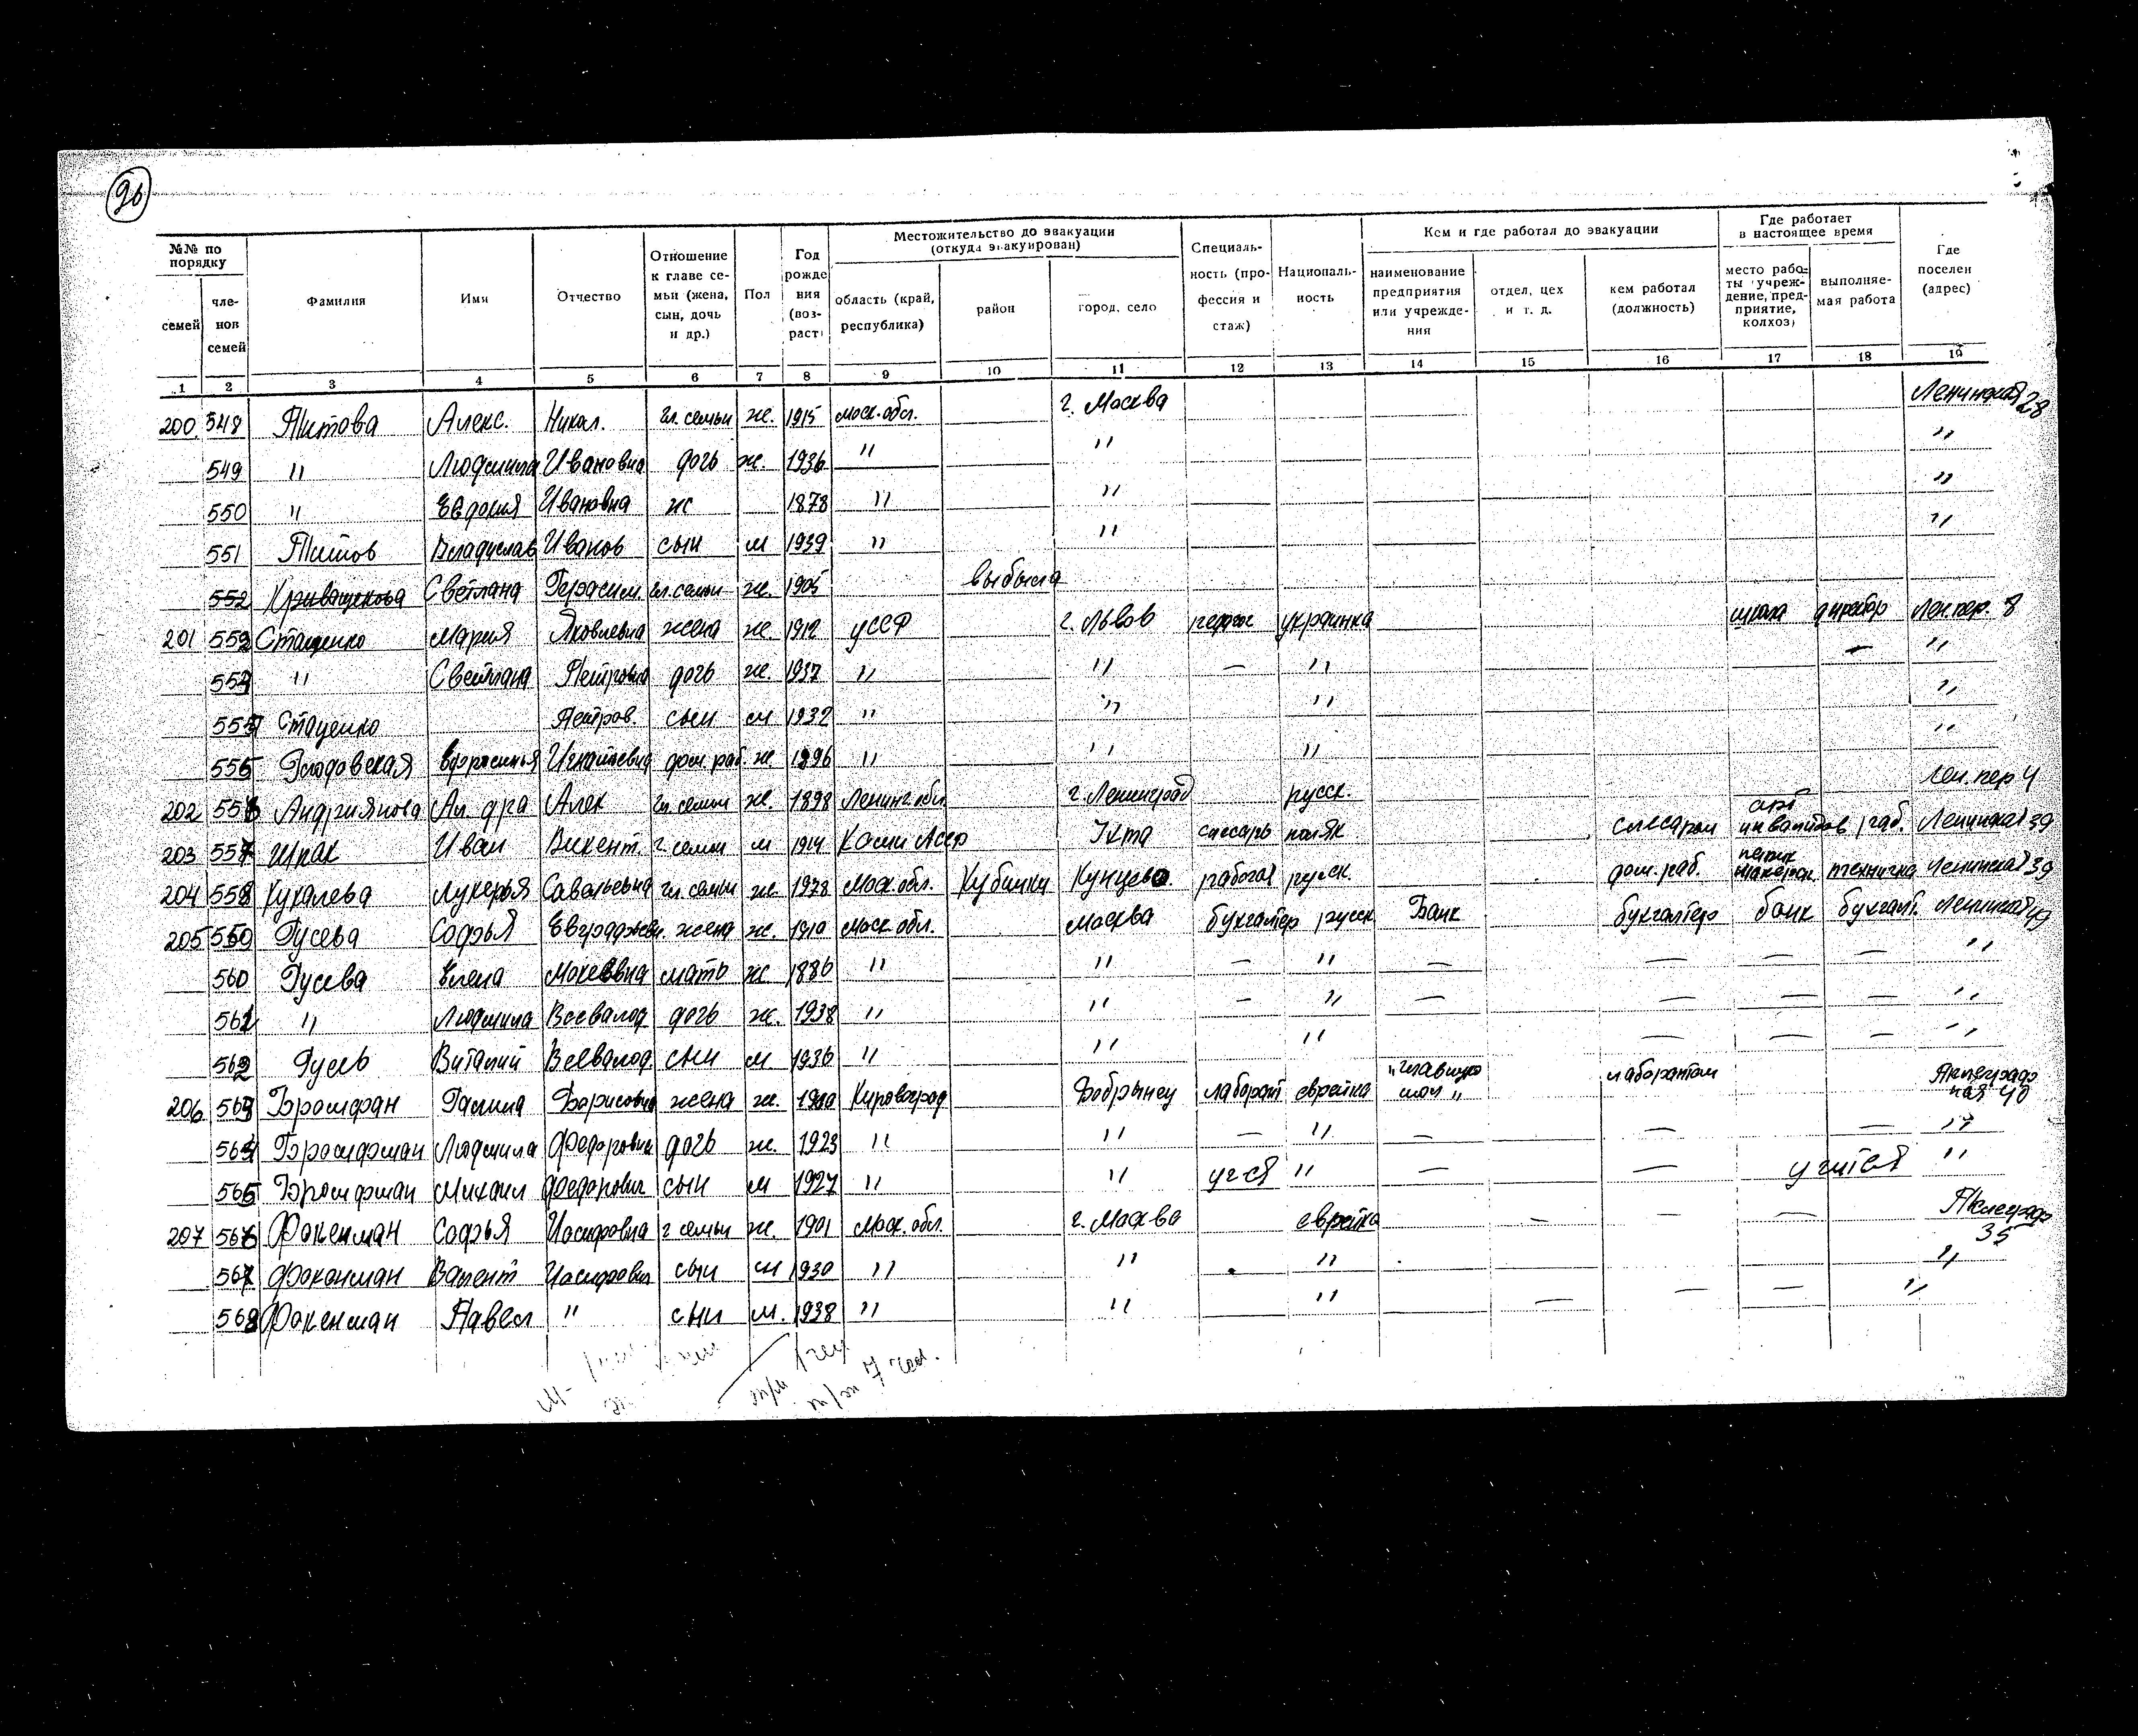 26
№№ по порядку
семей
членов семей
Фамилия
Имя
Отчество
Отношение к главе семьи (жена, сын, дочь и др.)
Пол
Год рождения (возраст)
Местожительство до эвакуации (откуда эвакуирован)
область (край, республика)
район
город, село
Специальность (профессия и стаж)
Национальность
Кем и где работал до эвакуации
наименование предприятия или учреждения
отдел, цех и т. д.
кем работал (должность)
Где работает в настоящее время
место работы (учреждение, предприятие, колхоз)
выполняемая работа
Где поселен (адрес)
1 2 3 4 5 6 7 8 9 10 11 12 13 14 15 16 17 18 19
200 548 Титова Алекс. Никол. гл. семьи ж. 1915 Моск. обл. г. Москва Ленинская 28
549 " Людмила Ивановна дочь ж. 1936 " " "
550 " Евдокия Ивановна ж 1878 " " "
551 Титов Владислав Иванов сын м 1939 " " "
552 Криващекова Светлана Герасим. гл. семьи ж. 1905 выбыла
201 552 Стаценко Мария Яковлевна жена ж. 1912 УССР г. Львов педагог украинка школа директор Лен. пер. 8
553 " Светлана Петровна дочь ж. 1937 " " — " — "
554 Стаценко Петров. сын м 1932 " " " "
555 Ефросинья Игнатьевна дом. раб. ж 1896 " " " "
202 556 Андриянова Ал-дра Алек гл. семьи ж. 1898 Ленинг. обл. г. Ленинград русск. Лен. пер 4
203 557 Шпак Иван Викент. г семьи м 1914 Коми Асср Ухта слесарь поляк слесарем арт инвалидов раб. Ленинская 39
204 558 Кукалева Лукерья Савельевна гл. семьи ж. 1978 Моск. обл. Кубинки Кунцево. рабочая русск. дом. раб. техничка Ленинская 39
205 559 Гусева Софья жена ж. 1910 Моск. обл. Москва бухгалтер русск Банк бухгалтер банк бухгалт. Ленинская 49
560 Гусева Елена Мокеевна мать ж 1886 " " — " — — — — "
561 " Людмила Всевалод дочь ж. 1938 " " — " — — — — "
562 Гусев Виталий Всевалод. сын м 1936 " " " — — — "
206 563 Бромфан Галина Борисовна жена ж. 1900 Кировоград Бобрынец лаборант еврейка лаборантом 40
564 Бромфман Людмила Федоровна дочь ж. 1923 " " — " — — — "
565 Бромфман Михаил Федорович сын м 1927 " " уч-ся " — — учится "
207 566 Факенман Софья Иосифовна г семьи ж. 1901 Моск. обл. г. Москва еврейка — — — 35
567 Факенман Валент Иосифович сын м 1930 " " " "
568 Факенман Павел " сын м. 1938 " " " — — — "